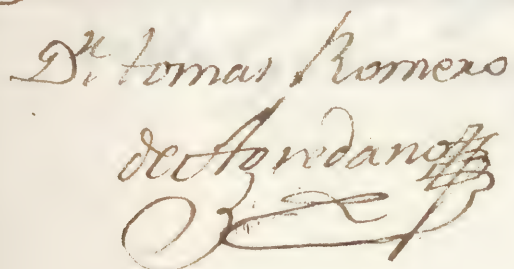 Dn. tomas Romero
de Agredano